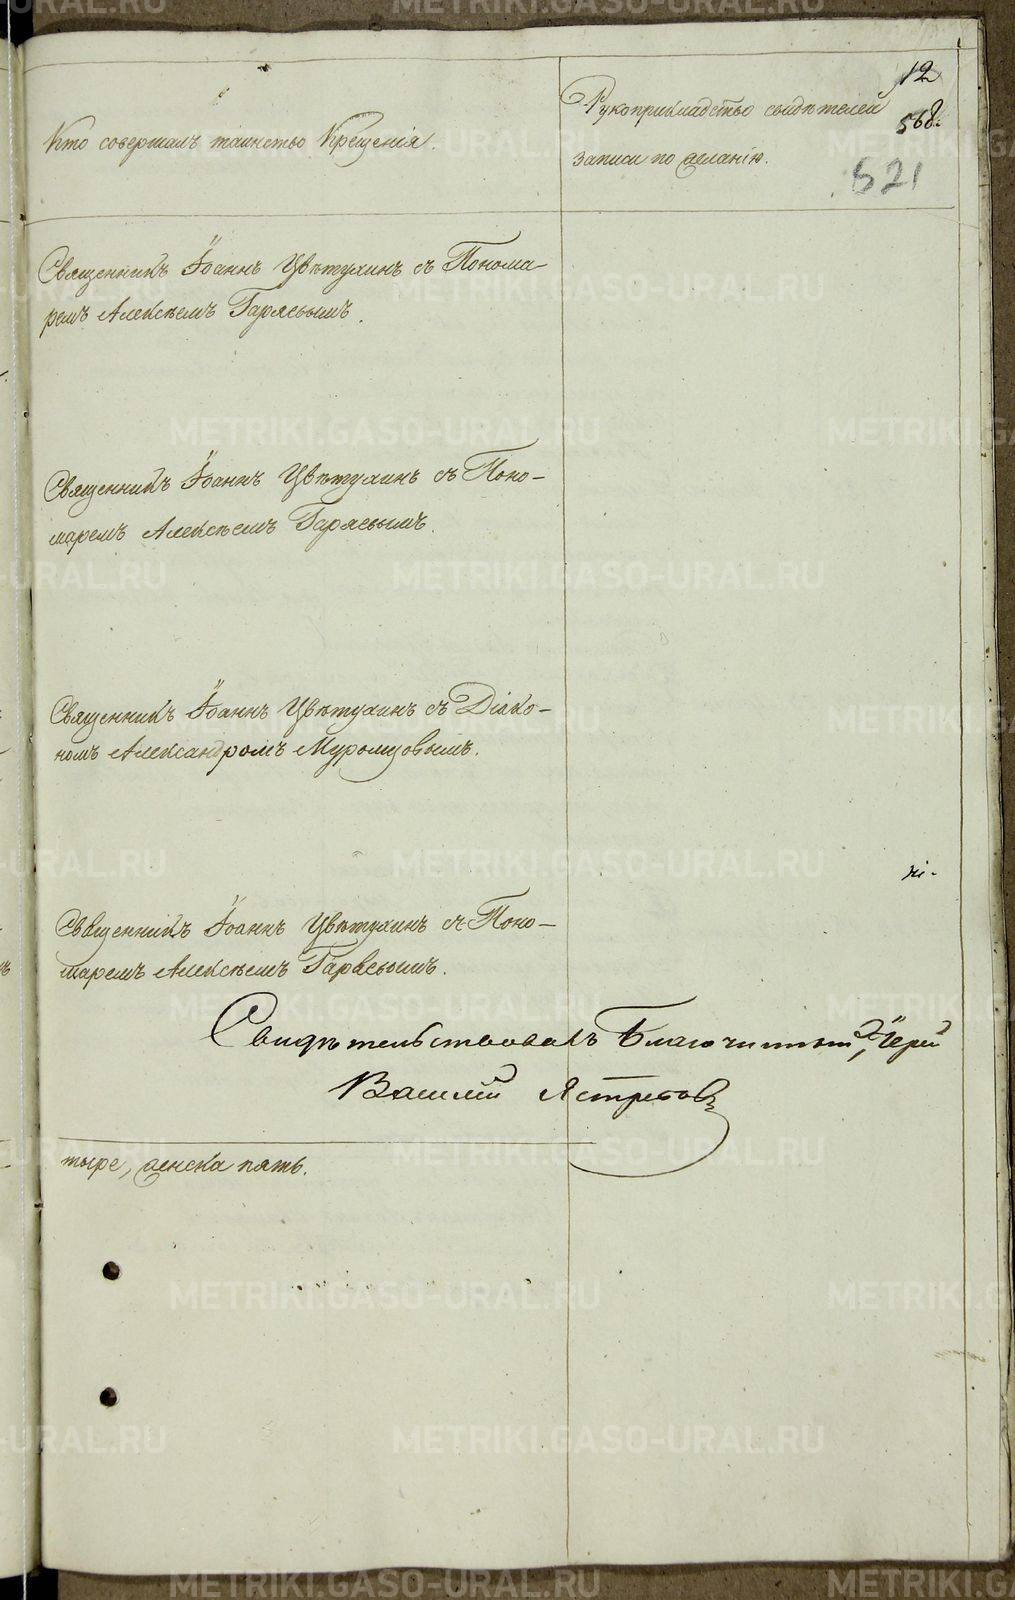 12
568.
521
Кто совершалъ таинство Крещенія.
Рукоприкладство свидѣтелей
записи по желанію.
Священникъ Іоаннъ Цвѣтухинъ съ Понома-
ремъ Алексѣемъ Гаряевымъ.
Священникъ Іоаннъ Цвѣтухинъ съ Поно-
маремъ Алексѣемъ Гаряевымъ.
Священникъ Іоаннъ Цвѣтухинъ съ Діако-
номъ Александромъ Муромцовымъ.
Священникъ Іоаннъ Цвѣтухинъ съ Поно-
маремъ Алексѣемъ Гаряевымъ.
Свидѣтельствовалъ Благочинный, Іерей
Василій Ястребовъ
тыре, женска пять.
METRIKI.GASO-URAL.RU